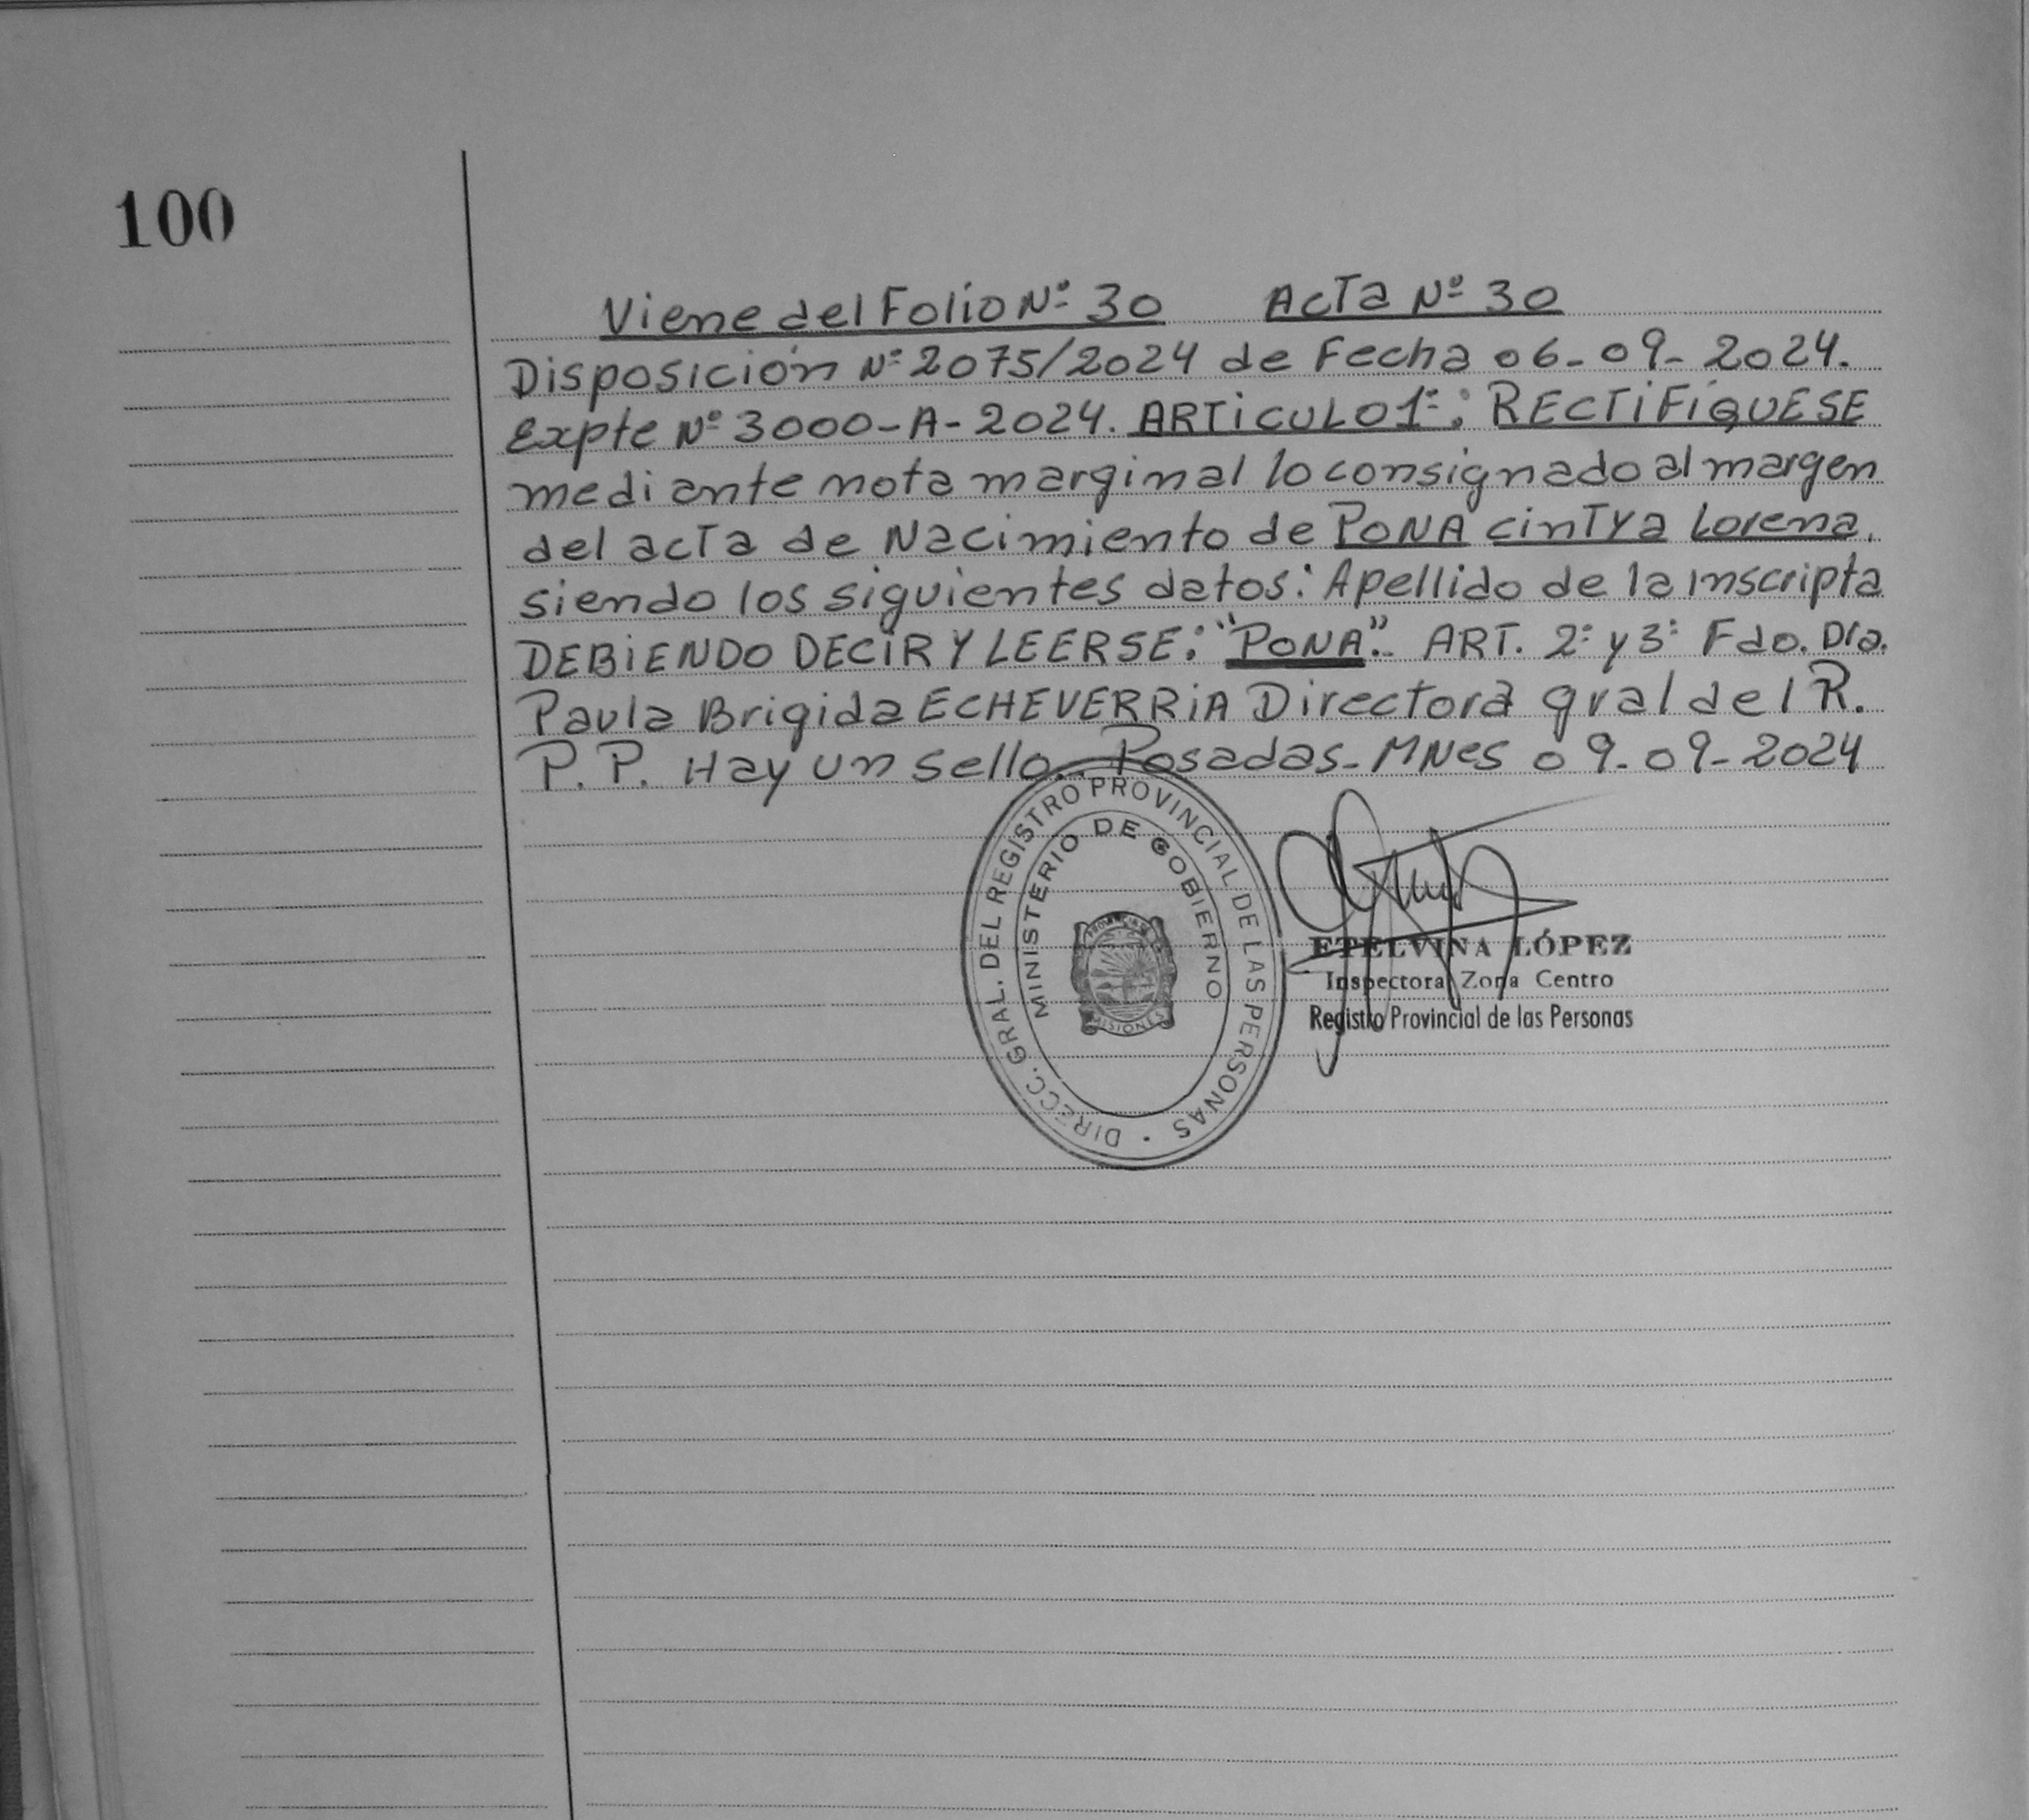 100
Viene del Folio Nº 30 Acta Nº 30
Disposición Nº 2075/2024 de Fecha 06-09-2024.
Expte Nº 3000-A-2024. ARTICULO 1º: RECTIFÍQUESE
mediante nota marginal lo consignado al margen
del acta de Nacimiento de PONA cinTya Lorena,
siendo los siguientes datos: Apellido de la Inscripta
DEBIENDO DECIR Y LEERSE: "PONA".- ART. 2º y 3º Fdo. Dra.
Paula Brigida ECHEVERRIA Directora gral del R.
P. P. Hay un sello.. Posadas-MNes 09-09-2024
DIRECC. GRAL. DEL REGISTRO PROVINCIAL DE LAS PERSONAS
MINISTERIO DE GOBIERNO
MISIONES
ETELVINA LÓPEZ
Inspectora Zona Centro
Registro Provincial de las Personas